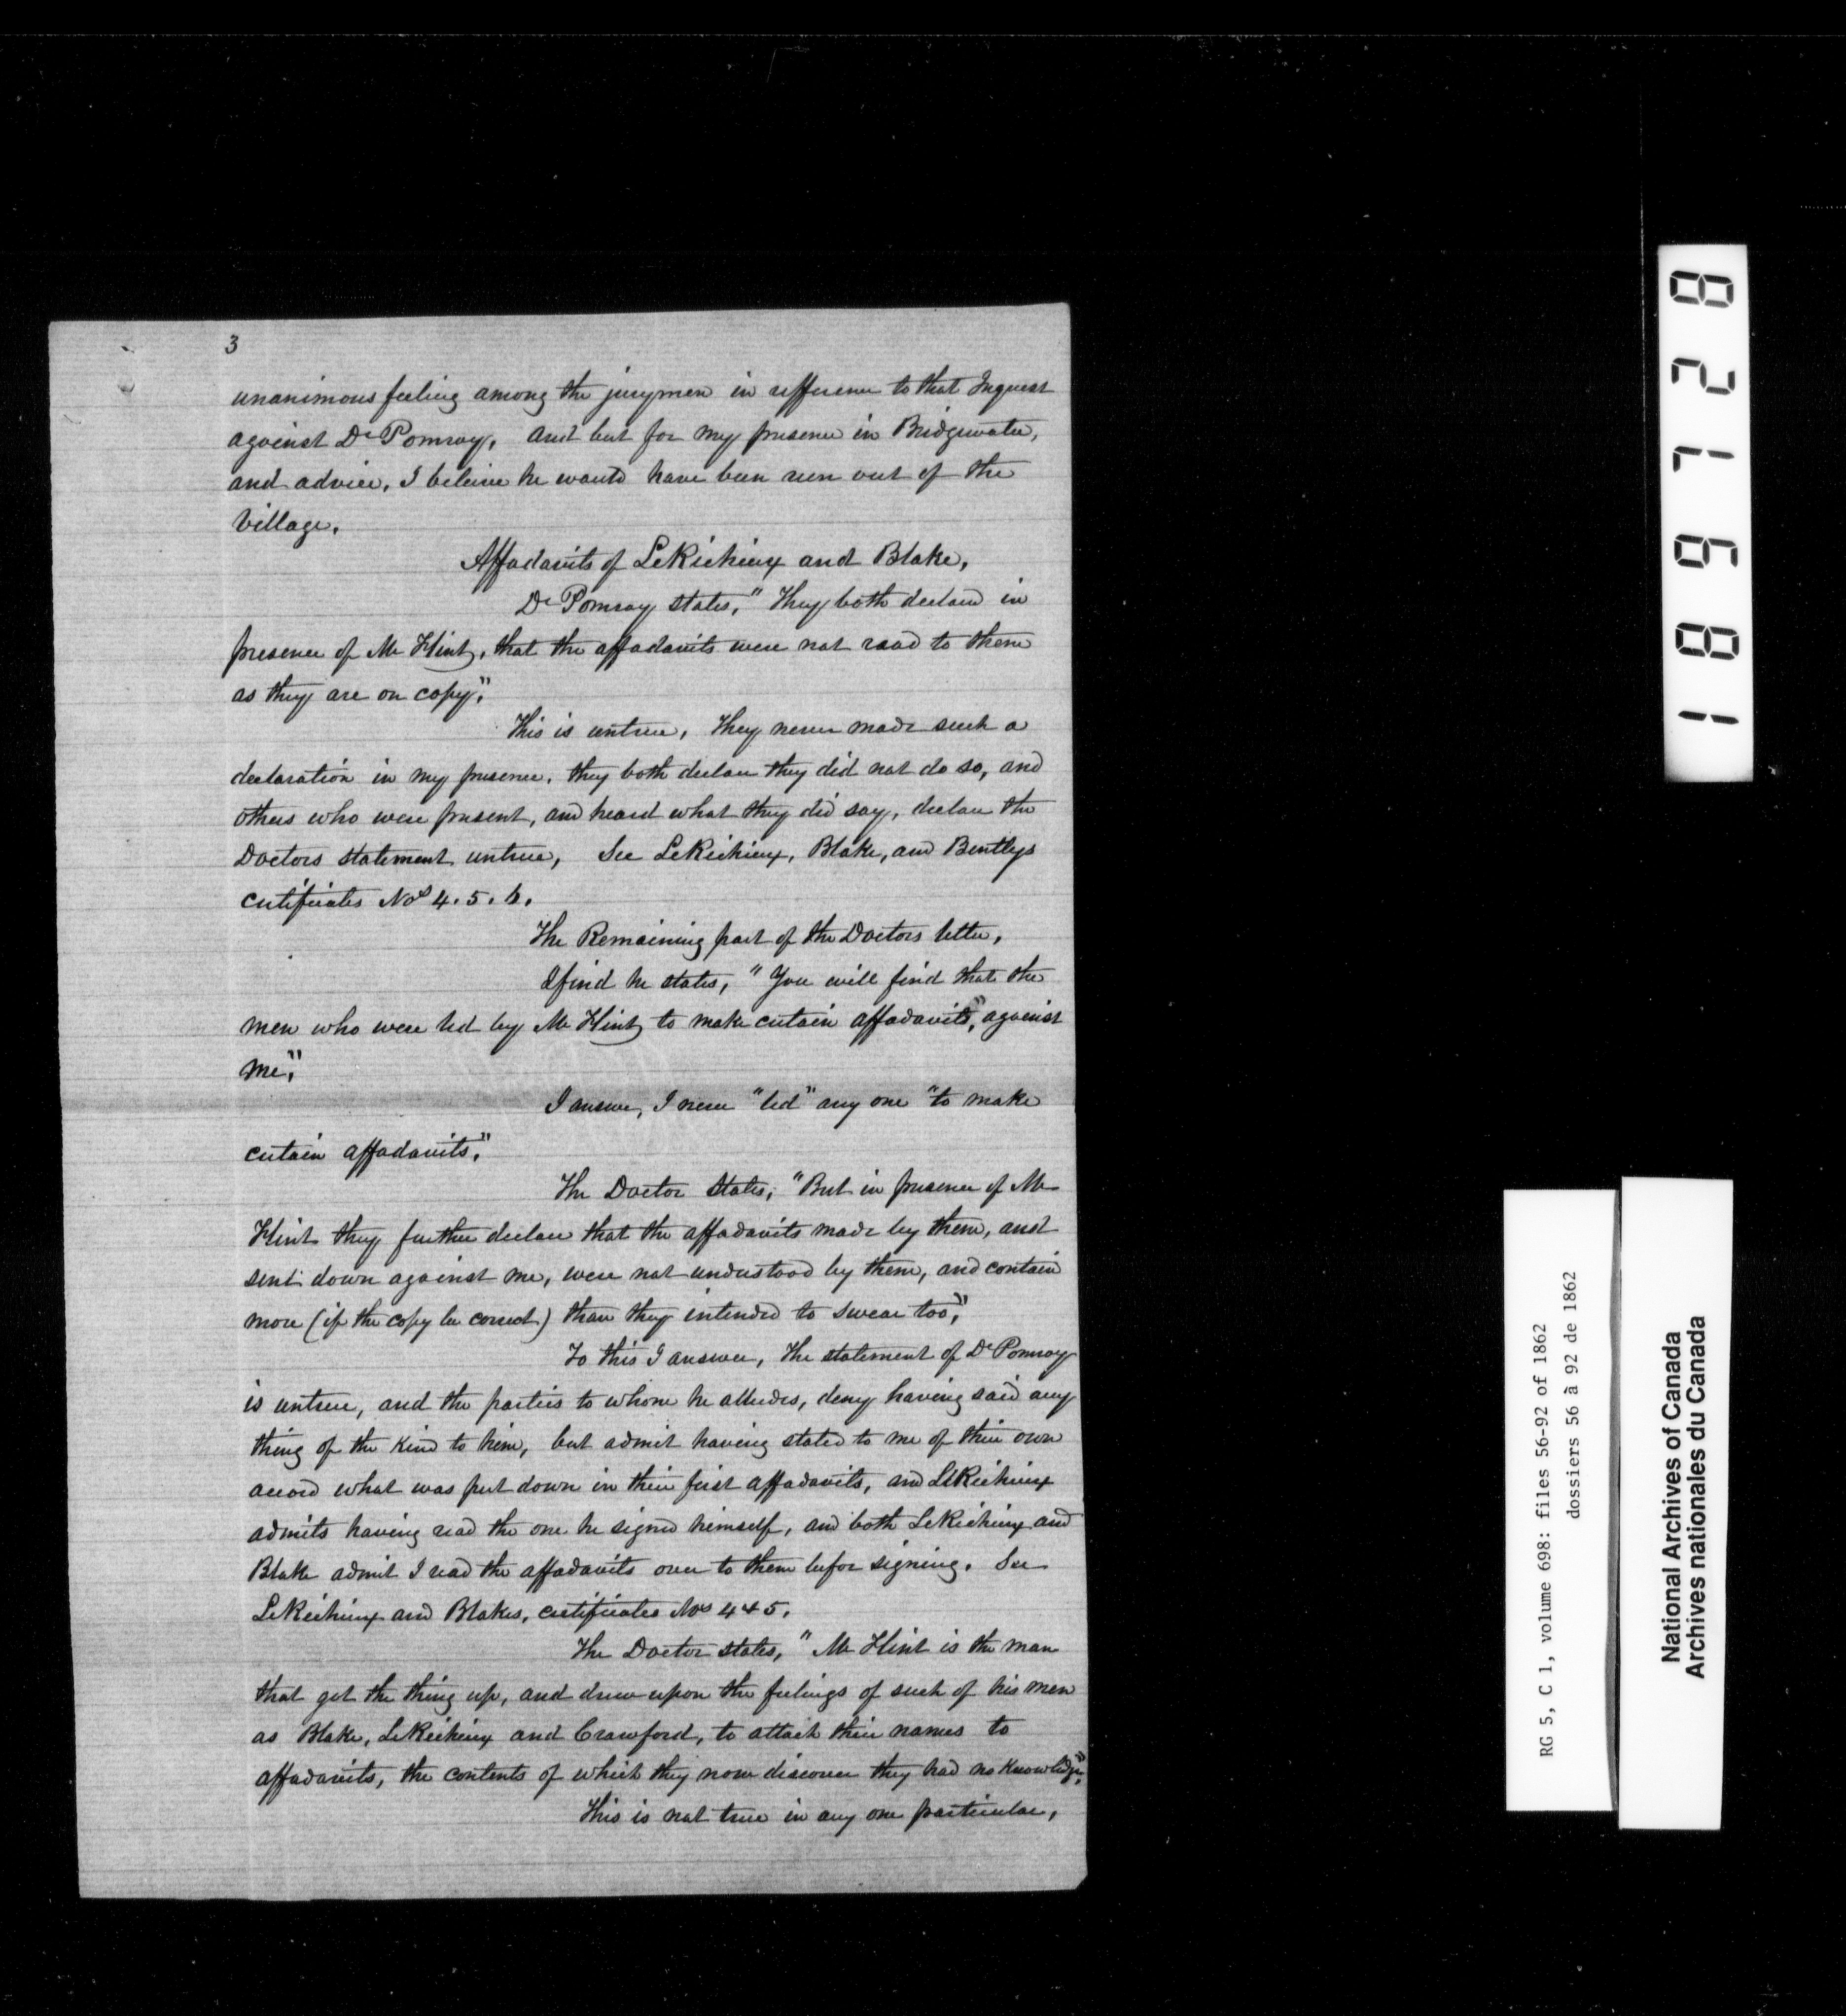 3
unanimous feeling among the jurymen in refference to that Inquest
against Dr Pomroy, and but for my presence in Bridgewater,
and advice, I beleive he would have been run out of the
Village.
Affadavits of LeRichieux and Blake,
Dr Pomroy states, "They both declare in
presence of Mr Flint, that the affadavits were not read to them
as they are on copy."
This is untrue, They never made such a
declaration in my presence, they both declare they did not do so, and
others who were present, and heard what they did say, declare the
Doctors statement untrue, See LeRichieux, Blake, and Bentleys
certificates Nos 4. 5. 6.
The Remaining part of the Doctors letter,
I find he states, "You will find that the
men who were led by Mr Flint to make certain affadavits," against
me,"
I answer, I never "led" any one "to make
certain affadavits,"
The Doctor States, "But in presence of Mr
Flint they further declare that the affadavits made by them, and
sent down against me, were not understood by them, and contain
more (if the copy be correct) than they intended to swear too,"
To this I answer, The statement of Dr Pomroy
is untrue, and the parties to whom he alludes, deny having said any
thing of the kind to him, but admit having stated to me of their own
accord what was put down in their first affadavits, and LeRichieux
admits having read the one he signed himself, and both LeRichieux and
Blake admit I read the affadavits over to them befor signing. See
LeRichieux and Blakes, certificates Nos 4 & 5.
The Doctor states, "Mr Flint is the man
that got the thing up, and drew upon the feelings of such of his men
as Blake, LeRichieux and Crawford, to attach their names to
affadavits, the contents of which they now discover they had no knowledge,"
This is not true in any one particular,
181728
RG 5, C 1, volume 698: files 56-92 of 1862
dossiers 56 à 92 de 1862
National Archives of Canada
Archives nationales du Canada